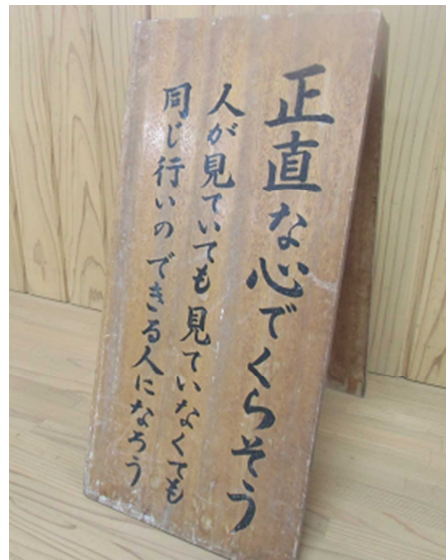 正直な心でくらそう
人が見ていても見ていなくても
同じ行いのできる人になろう